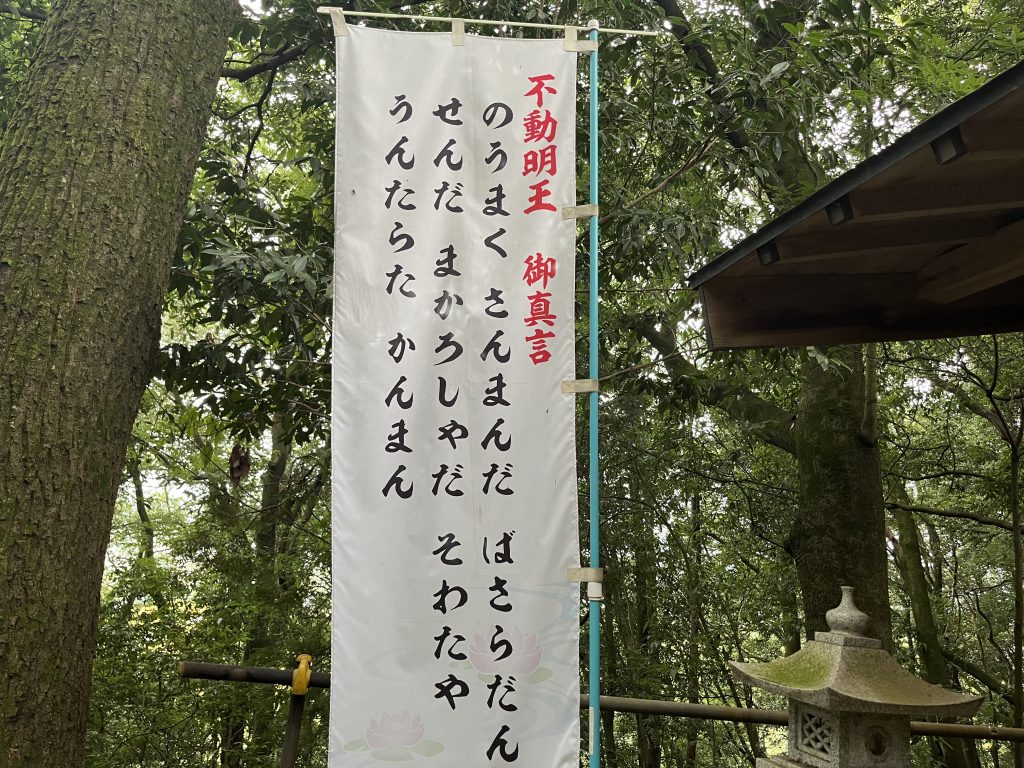 不動明王　御真言
のうまく さんまんだ ばさらだん
せんだ まかろしゃだ そわたや
うんたらた かんまん